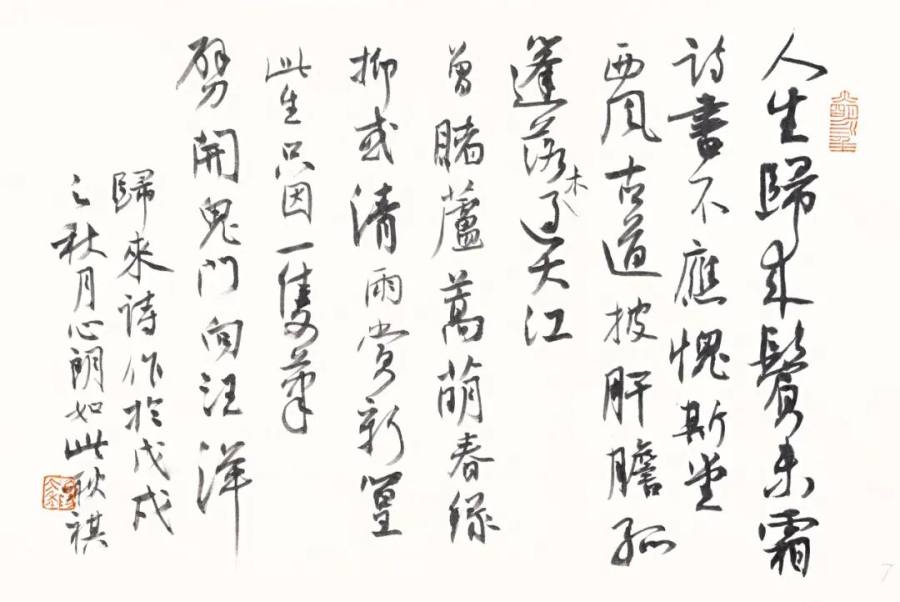 人生歸來鬢未霜
詩書不應愧斯堂
西風古道披肝膽孤
蓬落木過大江
曾睹蘆蒿萌春綠
抑或清雨賞新篁
此生只因一隻筆
劈開鬼門向汪洋
歸來詩作於戊戌
之秋月心朗如此耿祺